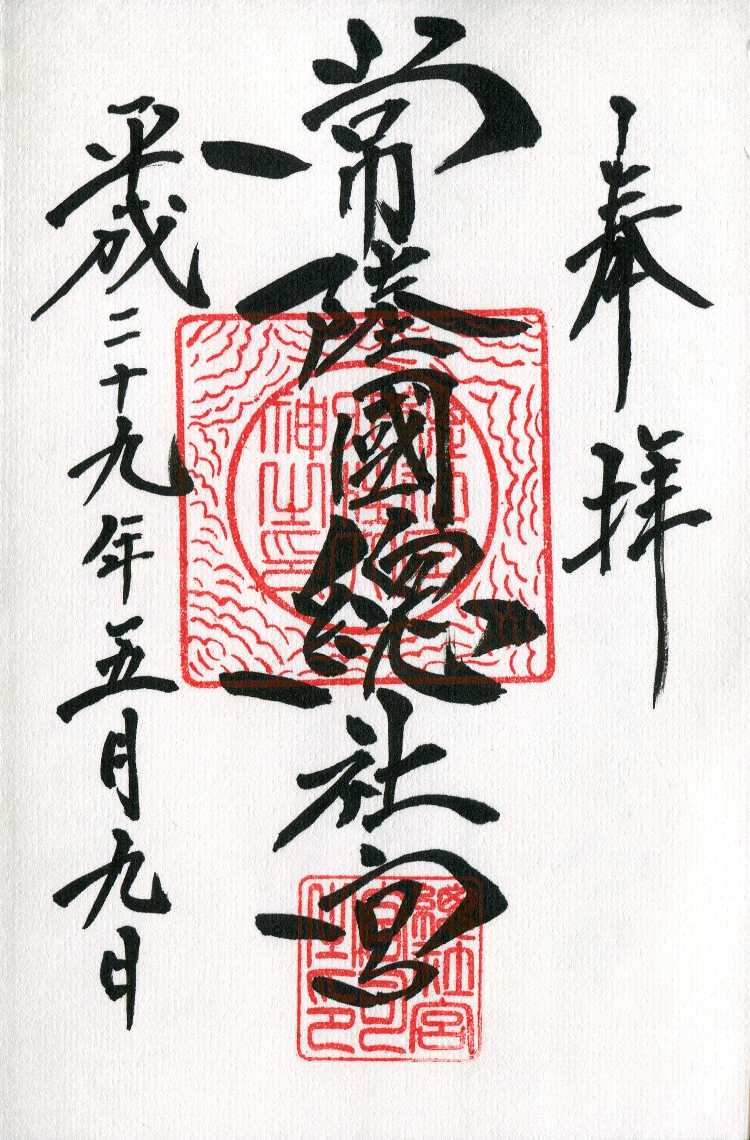 奉拝
常陸國總社宮
平成二十九年五月九日
總社宮